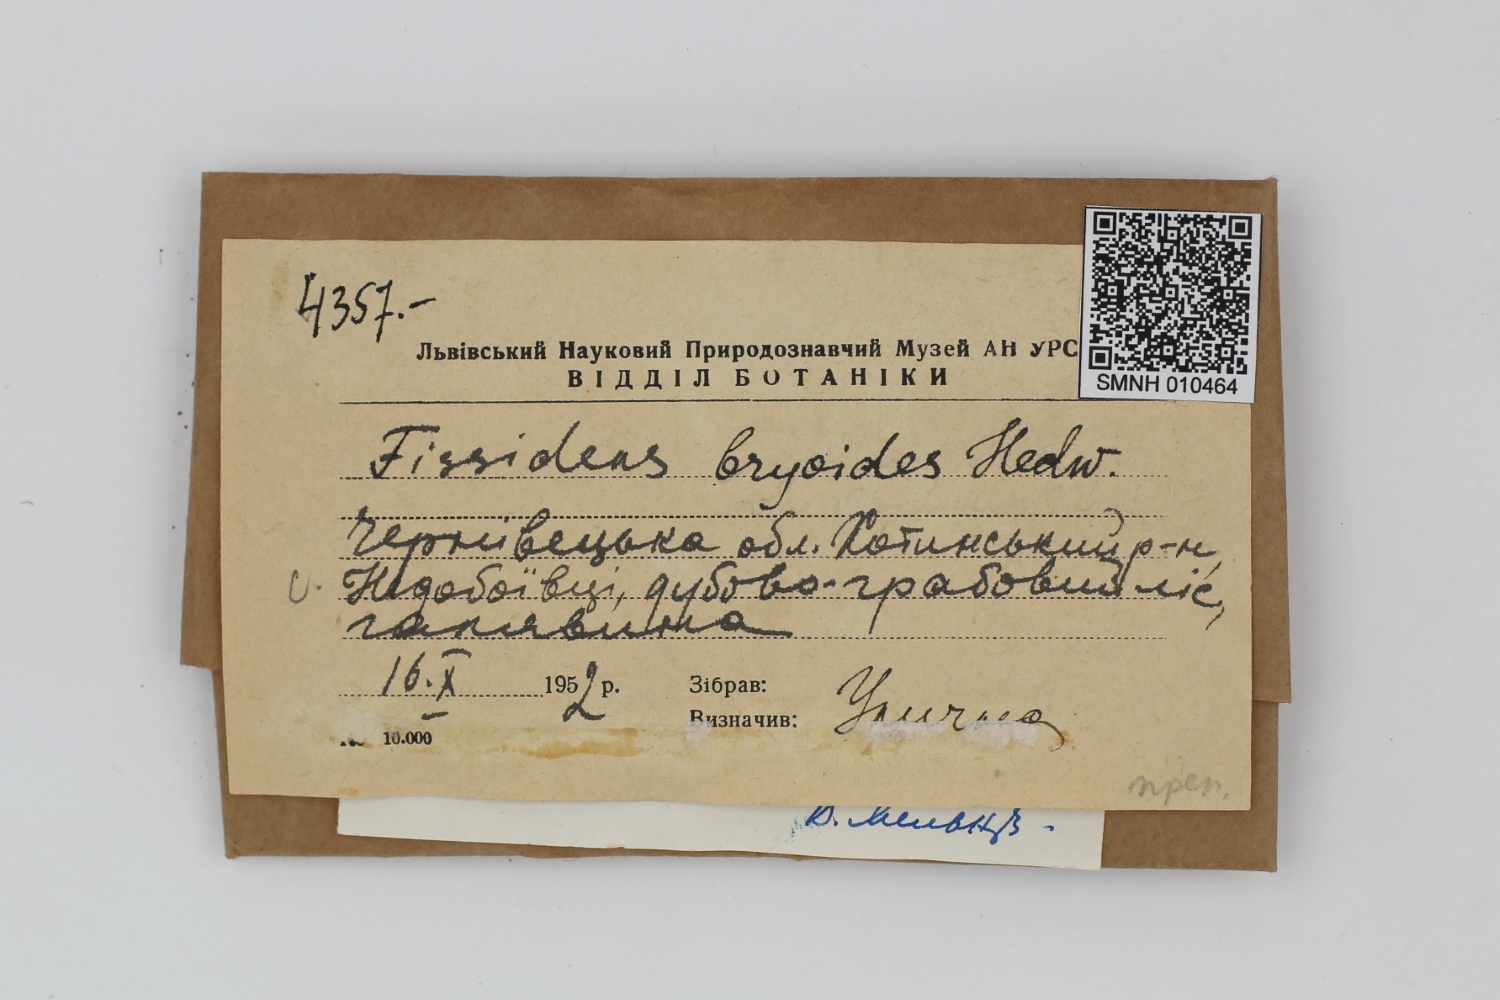 4357.-
Львівський Науковий Природознавчий Музей АН УРС
ВІДДІЛ БОТАНІКИ
SMNH 010464
Fissidens bryoides Hedw.
Чернівецька обл. Хотинський р-н
с. Недобоївці, дубово-грабовий ліс,
галявина
16.X 1952 р. Зібрав:
Визначив: Улична
10.000
преп.
В. Мельник